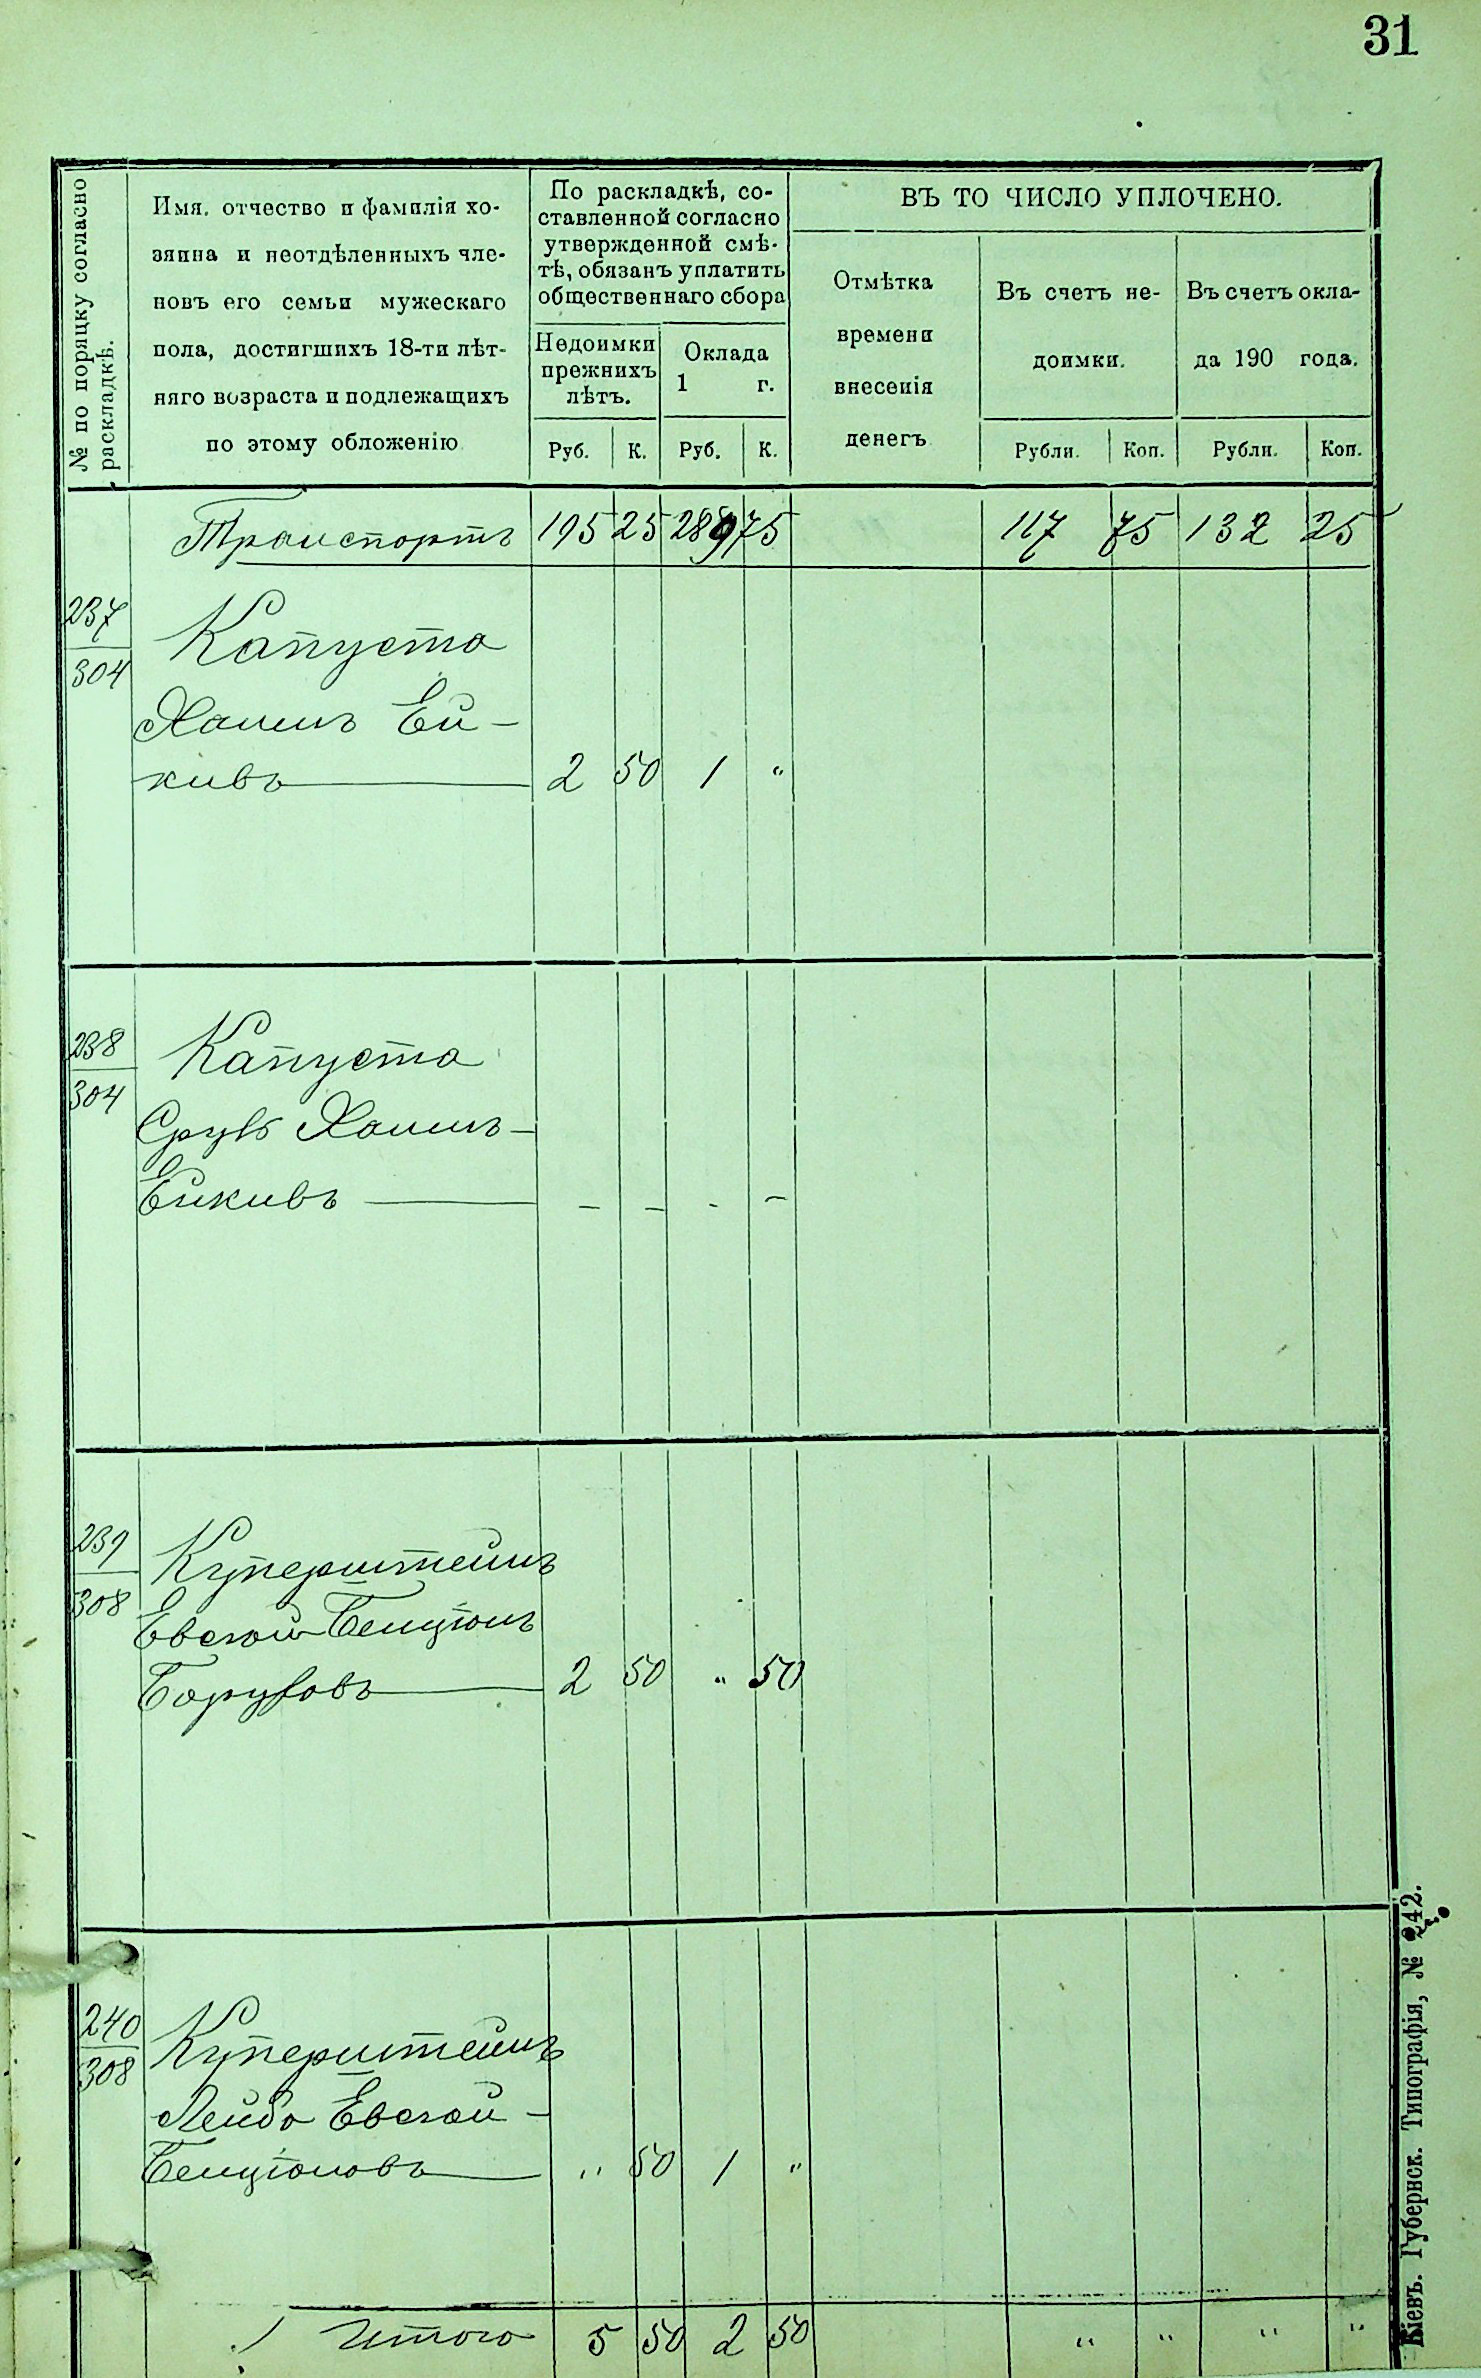 31
№ по порядку согласно
раскладкѣ.
Имя, отчество и фамилія хо-
зяина и неотдѣленныхъ чле-
новъ его семьи мужескаго
пола, достигшихъ 18-ти лѣт-
няго возраста и подлежащихъ
по этому обложенію
По раскладкѣ, со-
ставленной согласно
утвержденной смѣ-
тѣ, обязанъ уплатить
общественнаго сбора
Недоимки
прежнихъ
лѣтъ.
Оклада
1 г.
Руб. К. Руб. К.
ВЪ ТО ЧИСЛО УПЛОЧЕНО.
Отмѣтка
времени
внесенія
денегъ
Въ счетъ не-
доимки.
Въ счетъ окла-
да 190 года.
Рубли. Коп. Рубли. Коп.
Транспортъ 195 25 289 75 117 75 132 25
237
304
Капуста
Хаимъ Ей-
кивъ 2 50 1 "
238
304
Капуста
Сруль Хаимъ-
Ейкивъ - - - -
239
308
Куперштейнъ
Евсей Бенціонъ
Боруховъ 2 50 " 50
240
308
Куперштейнъ
Лейба Евсей-
Бенціоновъ " 50 1 "
Итого 5 50 2 50 " " " "
Кіевъ. Губернск. Типографія, № 242.